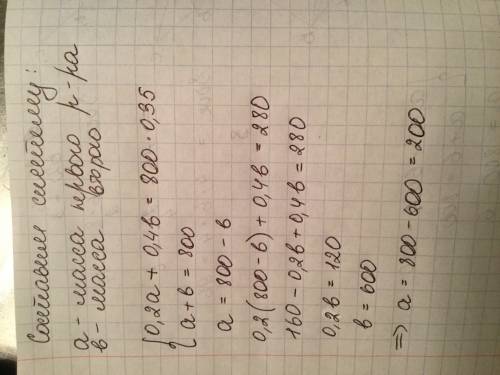 Составим систему:
а - масса первого р-ра
в - масса второго
{0,2а + 0,4в = 800 · 0,35
{а + в = 800
а = 800 - в
0,2(800 - в) + 0,4в = 280
160 - 0,2в + 0,4в = 280
0,2в = 120
в = 600
=> а = 800 - 600 = 200